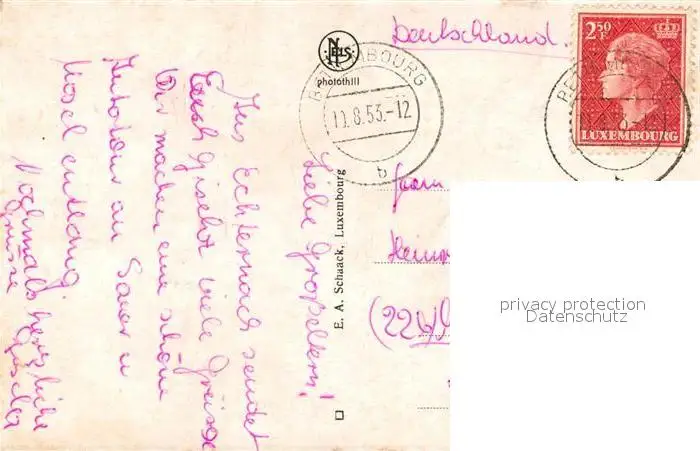 Deutschland.
NELS
photothill
BETTEMBOURG
10.8.53.-12
b
2,50 F
LUXEMBOURG
E. A. Schaack, Luxembourg
Liebe Großeltern!
Aus Echternach sendet
Euch Gisela viele Grüsse
Wir machen eine schöne
Autotour an Sauer u
Mosel entlang.
Nochmals herzliche
Grüsse Gisela
(22b)
privacy protection
Datenschutz